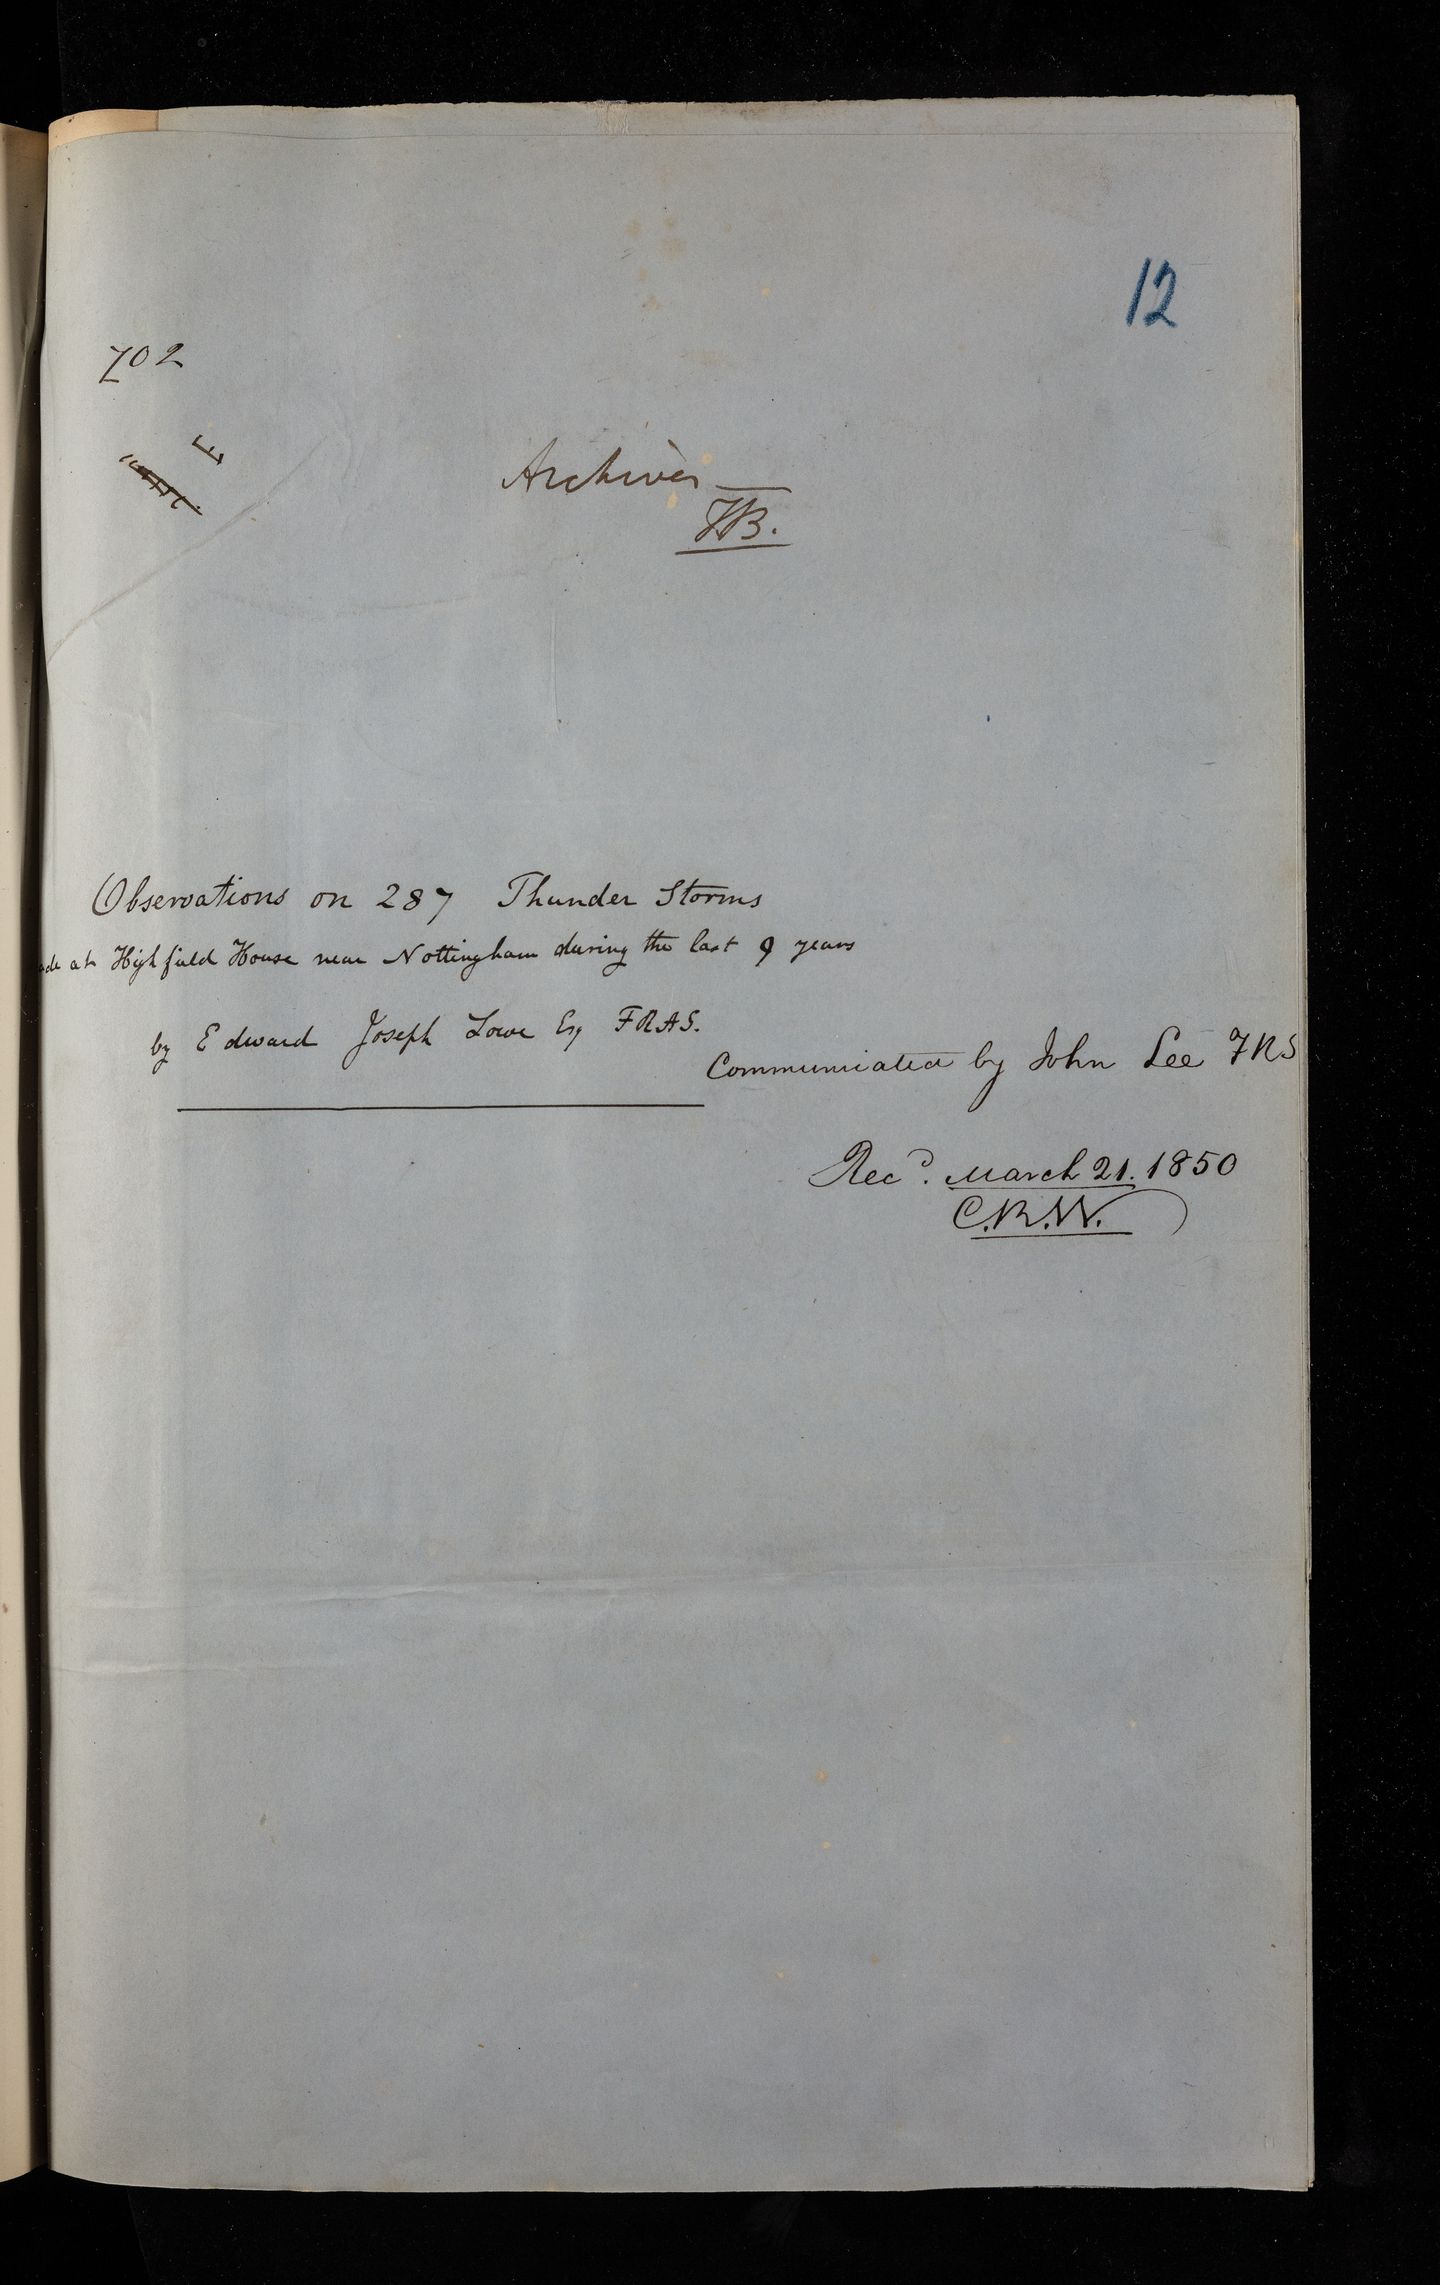 12
702
E
Archives
TB.
Observations on 287 Thunder Storms
at Highfield House near Nottingham during the last 9 years
by Edward Joseph Lowe Esq FRAS.
Communicated by John Lee FRS
Recd. March 21. 1850
C.R.W.